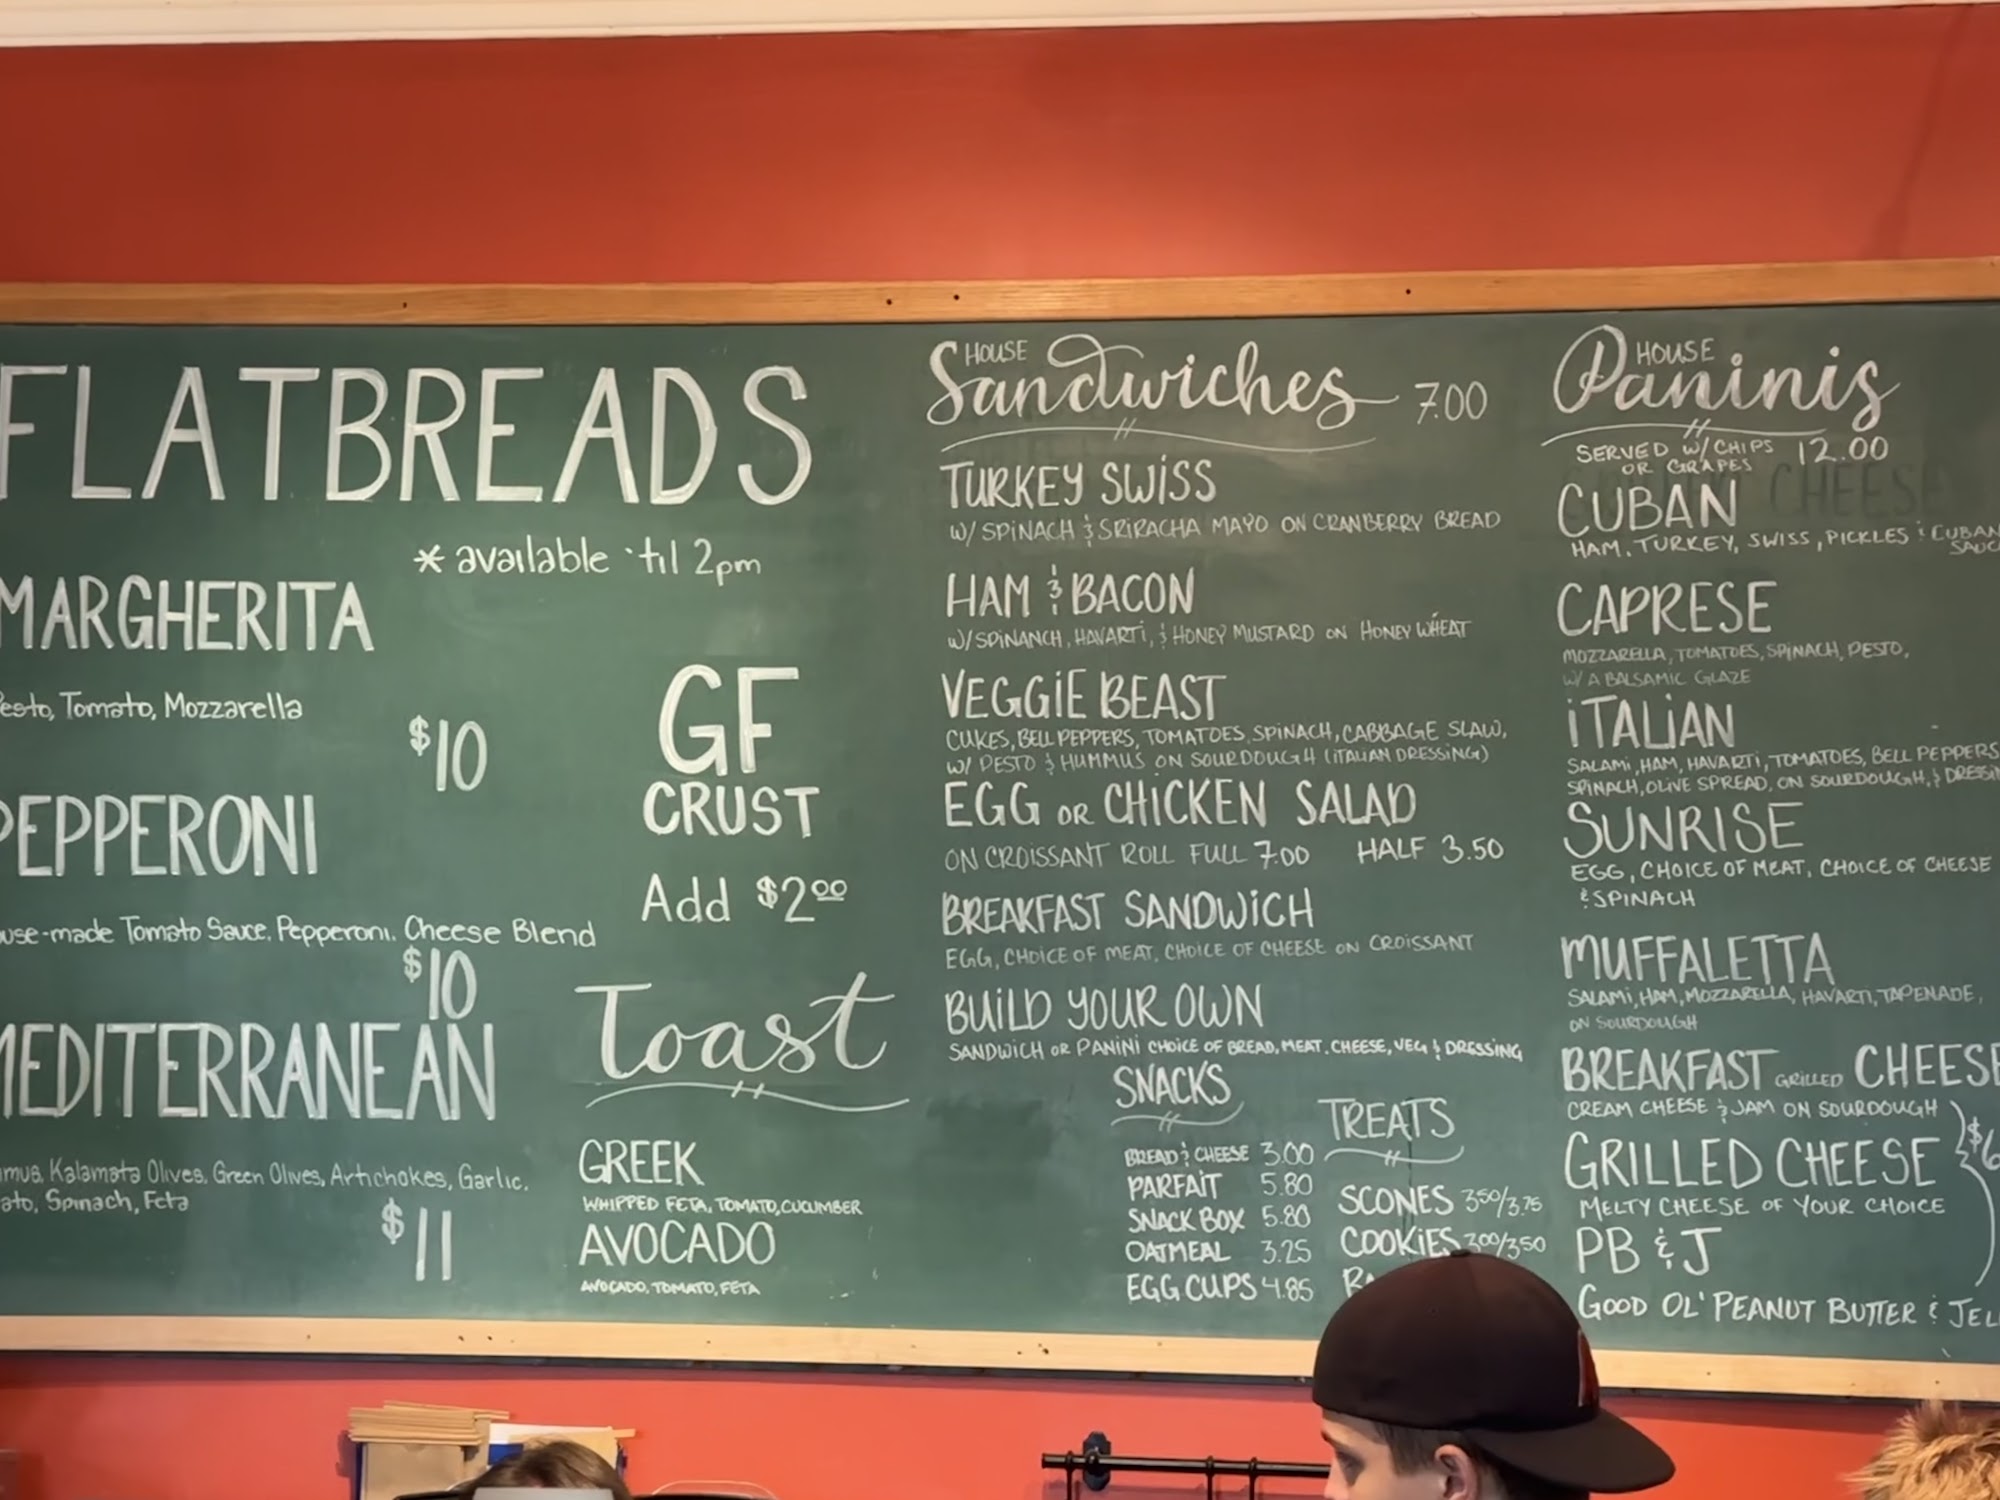 FLATBREADS
* available 'til 2pm
MARGHERITA
Pesto, Tomato, Mozzarella
$10
PEPPERONI
use-made Tomato Sauce, Pepperoni, Cheese Blend
$10
MEDITERRANEAN
mus, Kalamata Olives, Green Olives, Artichokes, Garlic,
ato, Spinach, Feta
$11
GF
CRUST
Add $2.00
Toast
GREEK
WHIPPED FETA, TOMATO, CUCUMBER
AVOCADO
AVOCADO, TOMATO, FETA
HOUSE
Sandwiches 7.00
TURKEY SWISS
W/ SPINACH & SRIRACHA MAYO ON CRANBERRY BREAD
HAM & BACON
W/ SPINANCH, HAVARTI, & HONEY MUSTARD ON HONEY WHEAT
VEGGIE BEAST
CUKES, BELL PEPPERS, TOMATOES, SPINACH, CABBAGE SLAW,
W/ PESTO & HUMMUS ON SOURDOUGH (ITALIAN DRESSING)
EGG OR CHICKEN SALAD
ON CROISSANT ROLL FULL 7.00 HALF 3.50
BREAKFAST SANDWICH
EGG, CHOICE OF MEAT, CHOICE OF CHEESE ON CROISSANT
BUILD YOUR OWN
SANDWICH OR PANINI CHOICE OF BREAD, MEAT, CHEESE, VEG & DRESSING
SNACKS
BREAD & CHEESE 3.00
PARFAIT 5.80
SNACK BOX 5.80
OATMEAL 3.25
EGG CUPS 4.85
TREATS
SCONES 3.50/3.75
COOKIES 3.00/3.50
HOUSE
Paninis
SERVED W/ CHIPS 12.00
OR GRAPES
CHEESE
CUBAN
HAM, TURKEY, SWISS, PICKLES & CUBAN
SAUC
CAPRESE
MOZZARELLA, TOMATOES, SPINACH, PESTO,
W/ A BALSAMIC GLAZE
ITALIAN
SALAMI, HAM, HAVARTI, TOMATOES, BELL PEPPERS
SPINACH, OLIVE SPREAD, ON SOURDOUGH, & DRESSIN
SUNRISE
EGG, CHOICE OF MEAT, CHOICE OF CHEESE
& SPINACH
MUFFALETTA
SALAMI, HAM, MOZZARELLA, HAVARTI, TAPENADE,
ON SOURDOUGH
BREAKFAST GRILLED CHEESE
CREAM CHEESE & JAM ON SOURDOUGH
$6
GRILLED CHEESE
MELTY CHEESE OF YOUR CHOICE
PB & J
GOOD OL' PEANUT BUTTER & JEL